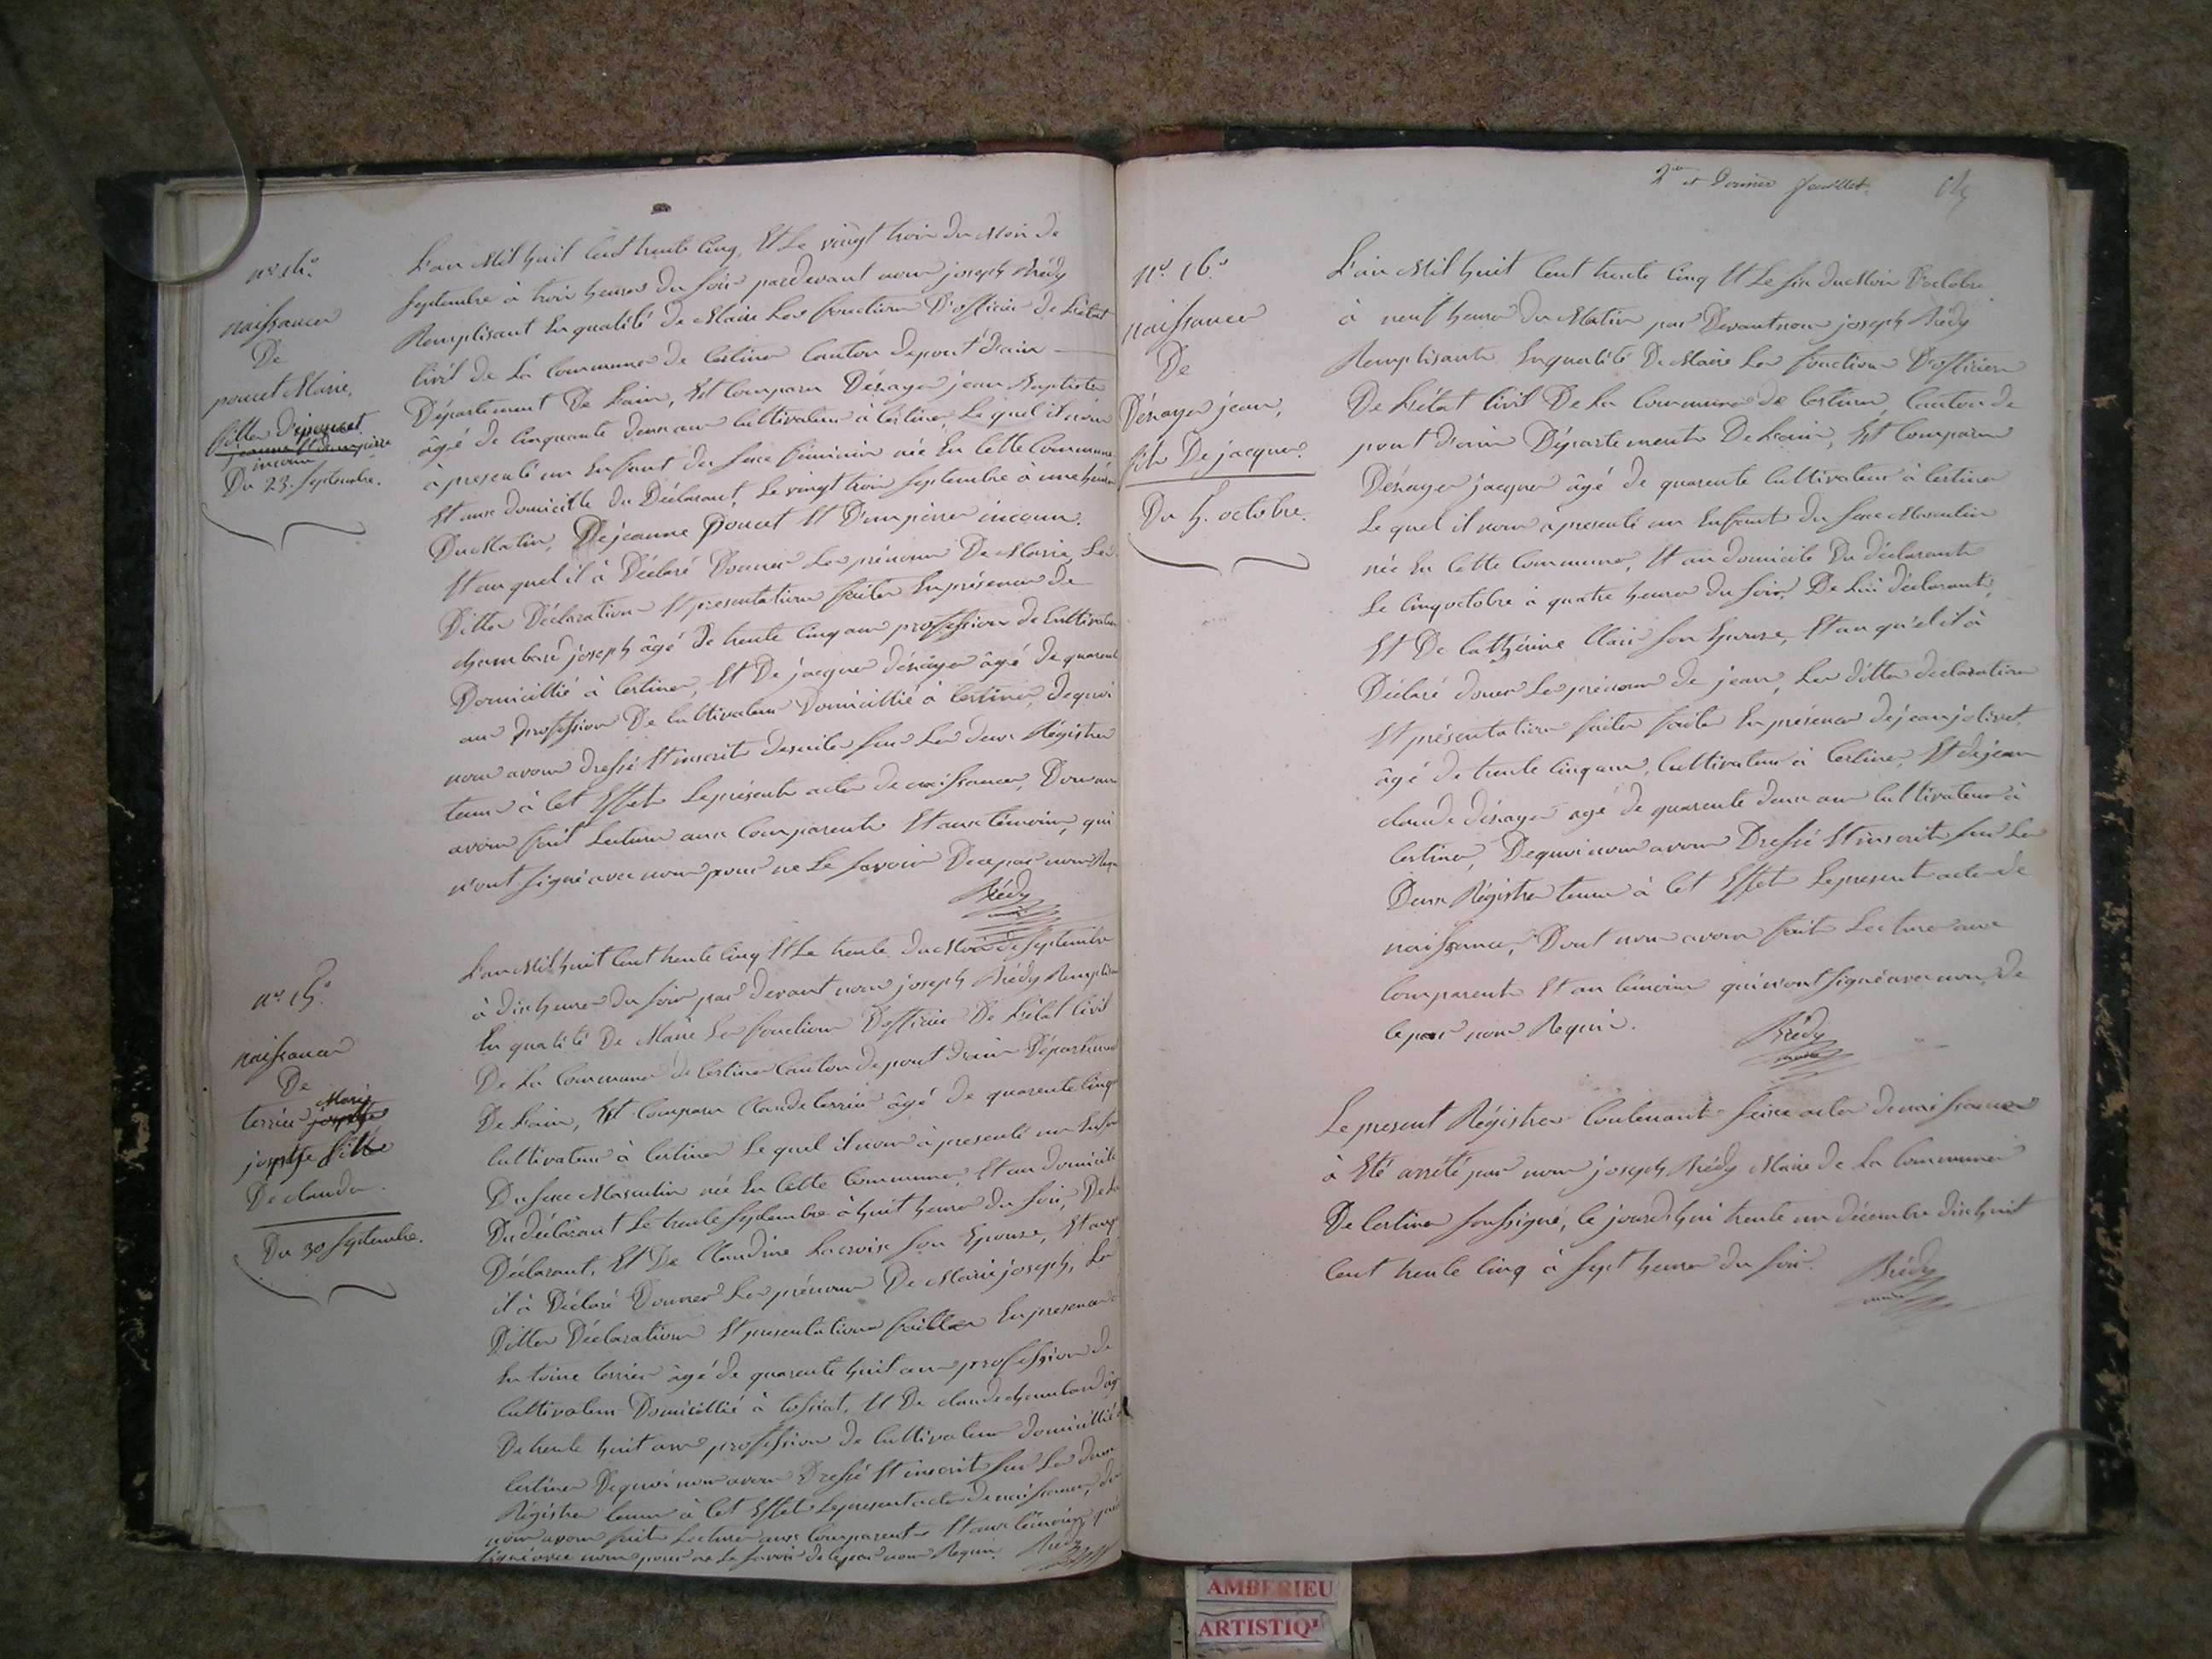 n.o 14.o
naissance
De
poncet Marie,
fille De poncet
jeanne et d'un père
inconnu
Du 23. septembre.
L'an Mil huit Cent trente Cinq Et Le vingt trois du Mois de
septembre à trois heures du soir par devant nous joseph
Remplisant En qualité de Maire Les fonctions D'officier de L'état
Civil de La Commune de Certines Canton de pont d'ain
Département De L'ain, Est Comparu Désnayer jean Baptiste
âgé de Cinquante deux ans Cultivateur à Certines, Le quel il nous
à presenté un Enfant du sexe féminin née En Cette Commune
Et aux domicille du Déclarant Le vingt trois septembre à une heure
Du Matin, De jeanne poncet Et D'un père inconu.
Et au quel il à Déclaré Donner Les prénoms De Marie, Les
Dittes Déclaration Et presentation faites En présence de
chambard joseph âgé de trente Cinq ans profession de Cultivateur
Domicillié à Certines, Et De jacques désnayer âgé de quarente
ans profession De Cultivateur Domicillié à Certines, de quoi
nous avons dressé Et inscrit de suite sur Les deux Régistres
tenus à Cet Effet Le présent acte de naissance, Dont nous
avons fait Lecture aux Comparents Et aux témoins, qui
n'ont signé avec nous pour ne Le savoir De ce par nous Requi

n.o 15.o
naissance
De
terrier Marie
josephe fille
De claude.
Du 30 septembre.
L'an Mil huit Cent trente Cinq Et Le trente du Mois de septembre
à dix heures du soir par devant nous joseph
En qualité De Maire Les fonctions D'officier De L'état Civil
De La Commune de Certines Canton de pont d'ain Département
De L'ain, Est Comparu Claude terrier âgé de quarente Cinq
Cultivateur à Certines Le quel il nous à presenté un Enfan
Du sexe Masculin née En Cette Commune, Et au domicile
Du déclarant Le trente septembre à huit heures du soir, De Lui
Déclarant, Et De Claudine Lacroix son Epouse, Et auqu
il à Déclaré Donner Les prénoms De Marie joseph, Les
Dittes Déclaration Et presentation faittes En presence
Entoine terrier âgé de quarente huit ans profession de
Cultivateur Domicillié à tossiat, Et De claude chambard âg
De trente huit ans profession de Cultivateur domicillié à
Certines De quoi nous avons Dressé Et inscrit sur Les deux
Régistres tenus à Cet Effet Le present acte De naissance, do
nous avons fait Lecture aux Comparents Et aux témoins qui
signé avec nous pour ne Le savoir de ce par nous Requi.

2.e et Dernier feuillet.
n.o 16.o
naissance
De
Désnayer jean,
fils De jacques.
Du 5. octobre.
L'an Mil huit Cent trente Cinq Et Le six du Mois D'octobre
à neuf heures du Matin par Devant nous joseph
Remplisant En qualité De Maire Les fonctions D'officier
De L'état Civil De La Commune de Certines Canton de
pont d'ain Département De L'ain, Est Comparu
Désnayer jacques âgé de quarente Cultivateur à Certines
Le quel il nous à presenté un Enfant du sexe Masculin
née En Cette Commune, Et au domicile Du déclarant
Le Cinq octobre à quatre heures du soir, De Lui déclarant,
Et De Cathérine Clair son Epouse, Et au quel il à
Déclaré doner Le prénom de jean, Les dittes déclaration
Et présentation faites faites En présence de jean jolivet
âgé de trente Cinq ans, Cultivateur à Certines, Et de jean
claude désnayer agé de quarente deux ans Cultivateur à
Certines, De quoi nous avons Dressé Et inscrit sur Les
Deux Régistres tenus à Cet Effet Le present acte de
naissance, Dont nous avons fait Lecture aux
Comparents Et au témoins qui n'ont signé avec nous, De
Ce par nous Requis.

Le present Régistre Contenant seize actes de naissance
à Eté arrété par nous joseph Maire de La Commune
De Certines soussigné, le jourd'hui trente un décembre dix huit
Cent trente Cinq à sept heures du soir.
AMBERIEU
ARTISTIQU